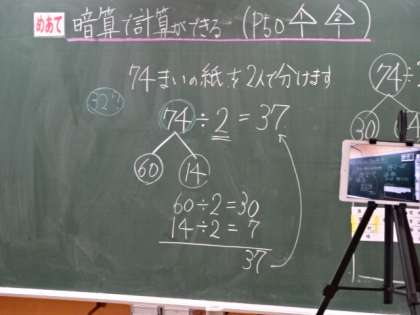 めあて 暗算で計算ができる (P50 4 2
74まいの紙を2人で分けます
32?
74÷2=37
60 14
60÷2=30
14÷2=7
37
74÷
30